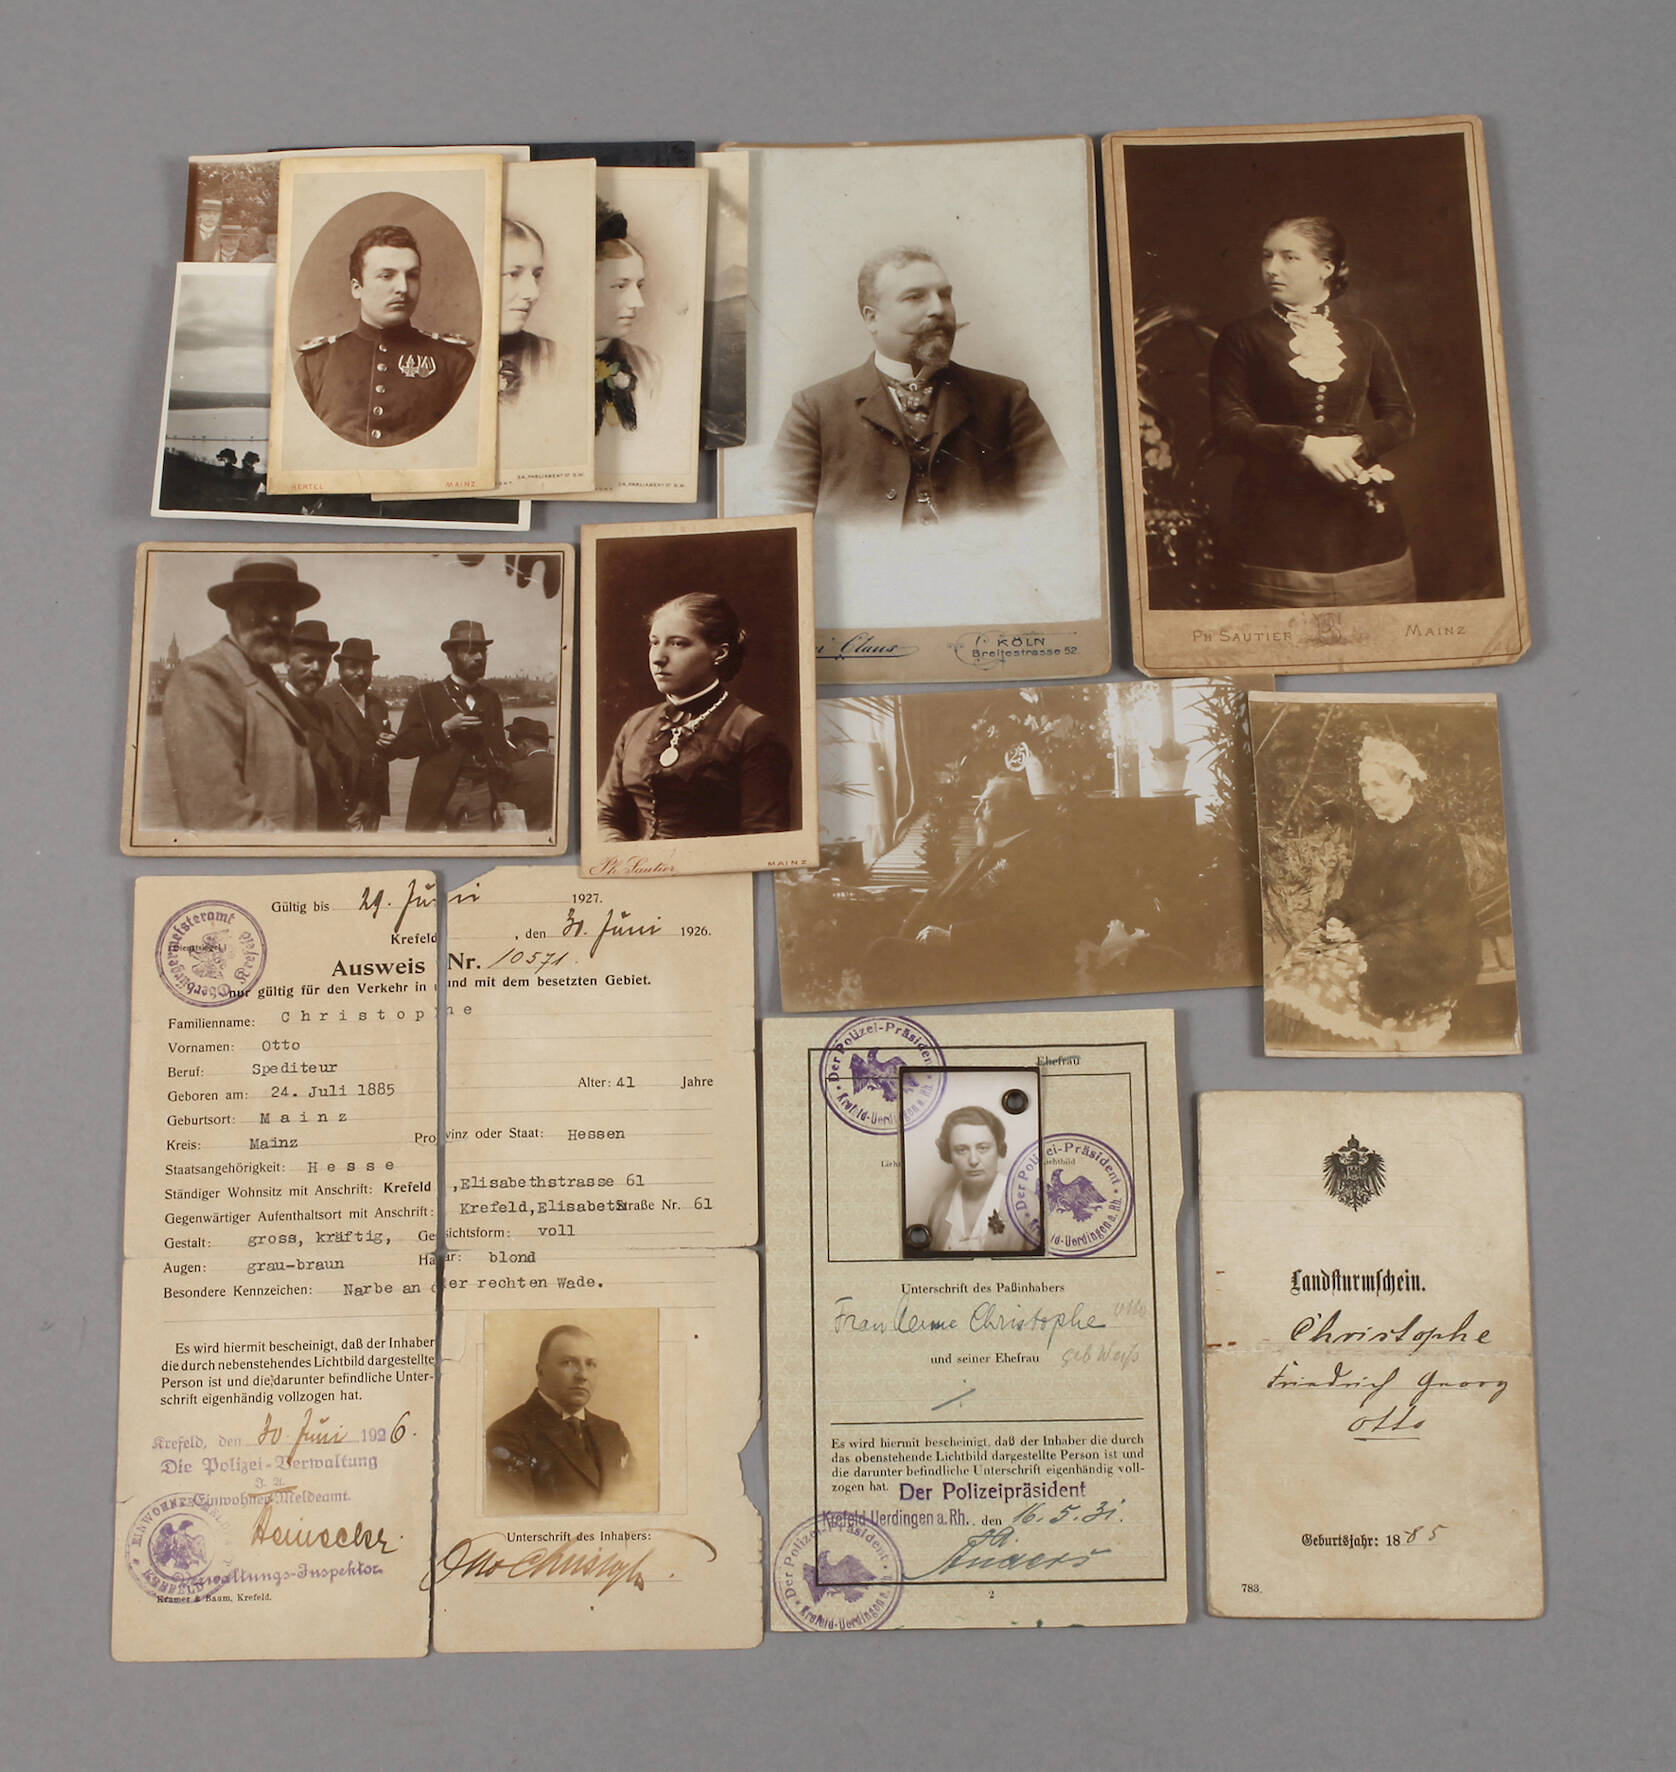 HERTEL MAINZ
2A, PARLIAMENT ST S.W.
2A, PARLIAMENT ST S.W.
Claus KÖLN
Breitestrasse 52
PH. SAUTIER MAINZ
Ph. Sautier MAINZ
25
Gültig bis 29. Juni 1927.
Oberbürgermeisteramt Krefeld
(Dienstsiegel)
Krefeld, den 30. Juni 1926.
Ausweis Nr. 10571.
nur gültig für den Verkehr in und mit dem besetzten Gebiet.
Familienname: Christophe
Vornamen: Otto
Beruf: Spediteur
Geboren am: 24. Juli 1885 Alter: 41 Jahre
Geburtsort: Mainz
Kreis: Mainz Provinz oder Staat: Hessen
Staatsangehörigkeit: Hesse
Ständiger Wohnsitz mit Anschrift: Krefeld, Elisabethstrasse 61
Gegenwärtiger Aufenthaltsort mit Anschrift: Krefeld, Elisabeth Straße Nr. 61
Gestalt: gross, kräftig, Gesichtsform: voll
Augen: grau-braun Haar: blond
Besondere Kennzeichen: Narbe an der rechten Wade.
Es wird hiermit bescheinigt, daß der Inhaber
die durch nebenstehendes Lichtbild dargestellte
Person ist und die darunter befindliche Unter-
schrift eigenhändig vollzogen hat.
Krefeld, den 30. Juni 1926.
Die Polizei-Verwaltung
J. A.
Einwohner-Meldeamt.
Verwaltungs-Inspektor
KREFELD
Kramer & Baum, Krefeld.
Unterschrift des Inhabers:
Otto Christophe.
Der Polizei-Präsident
Krefeld-Uerdingen a. Rh.
Ehefrau
Lichtbild
Der Polizei-Präsident
Krefeld-Uerdingen a. Rh.
Unterschrift des Paßinhabers
Frau Christophe Otto
und seiner Ehefrau geb Weiß
Es wird hiermit bescheinigt, daß der Inhaber die durch
das obenstehende Lichtbild dargestellte Person ist und
die darunter befindliche Unterschrift eigenhändig voll-
zogen hat. Der Polizeipräsident
Krefeld Uerdingen a. Rh., den 16. 5. 31.
Der Polizei-Präsident
Krefeld-Uerdingen a. Rh.
2
Landsturmschein.
Christophe
Friedrich Georg
Otto
Geburtsjahr: 1885
783.